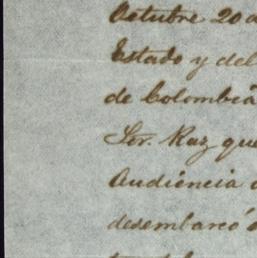 Octubre 20 d
Estado y del
de Colombia
Sor. Raz que
Audiencia
desembarcó